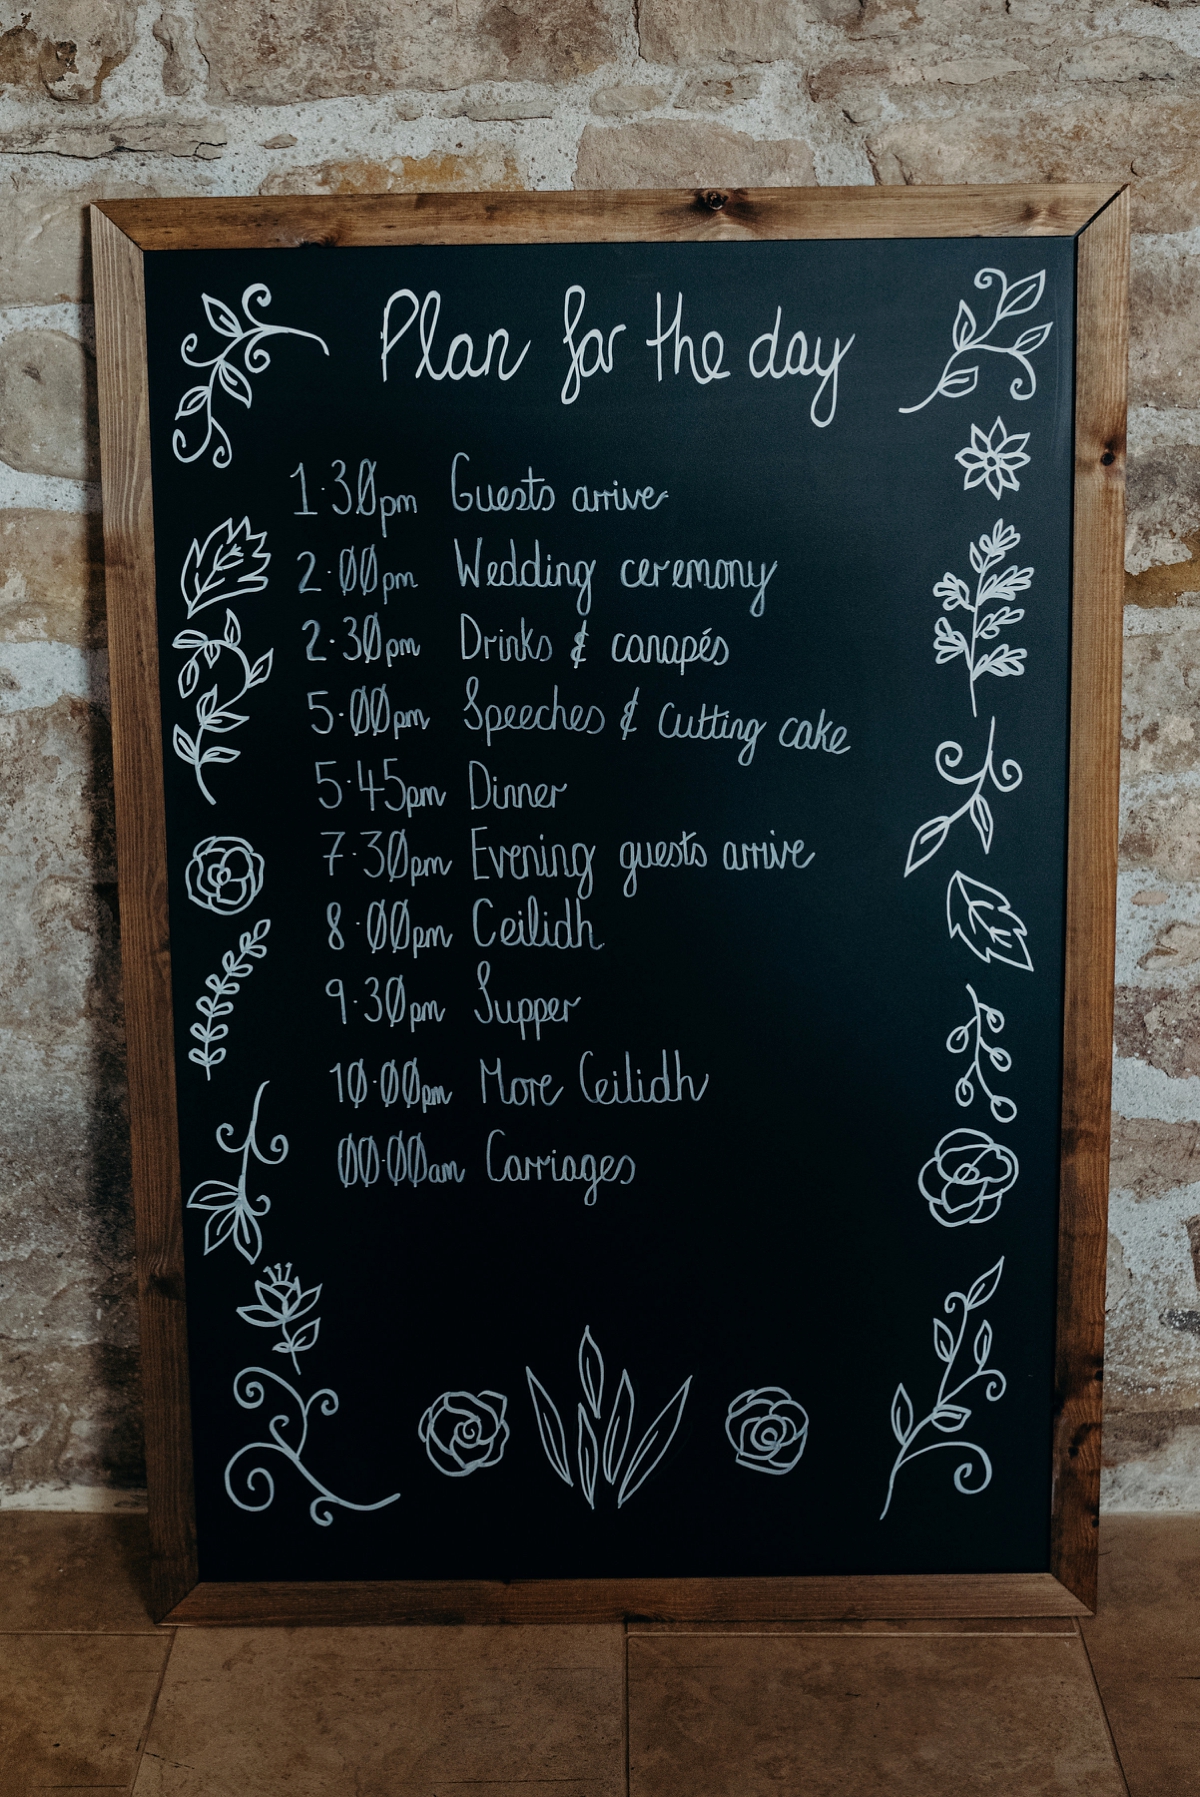 Plan for the day
1·30pm Guests arrive
2·00pm Wedding ceremony
2·30pm Drinks & canapés
5·00pm Speeches & cutting cake
5·45pm Dinner
7·30pm Evening guests arrive
8·00pm Ceilidh
9·30pm Supper
10·00pm More Ceilidh
00·00am Carriages